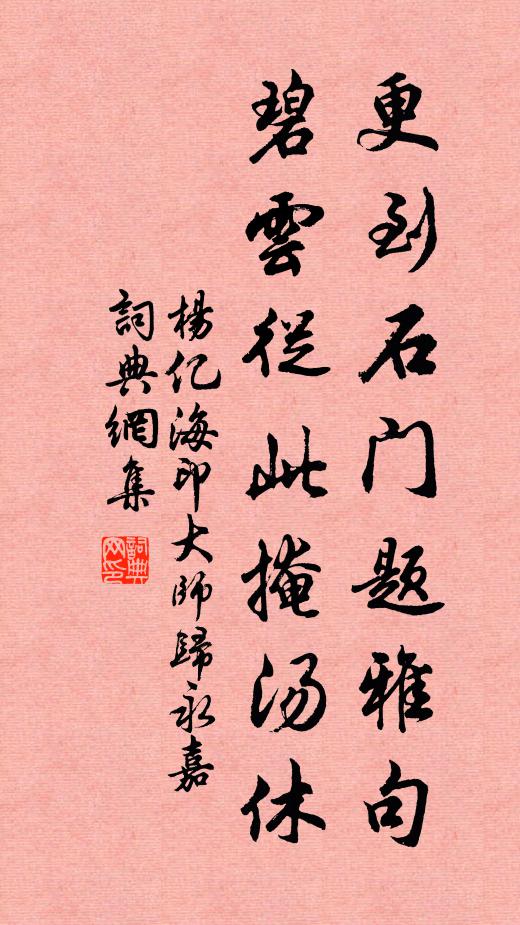 更到石门题雅句
碧雲從此掩汤休
楊亿海印大師歸永嘉
詞典網集
詞典网印